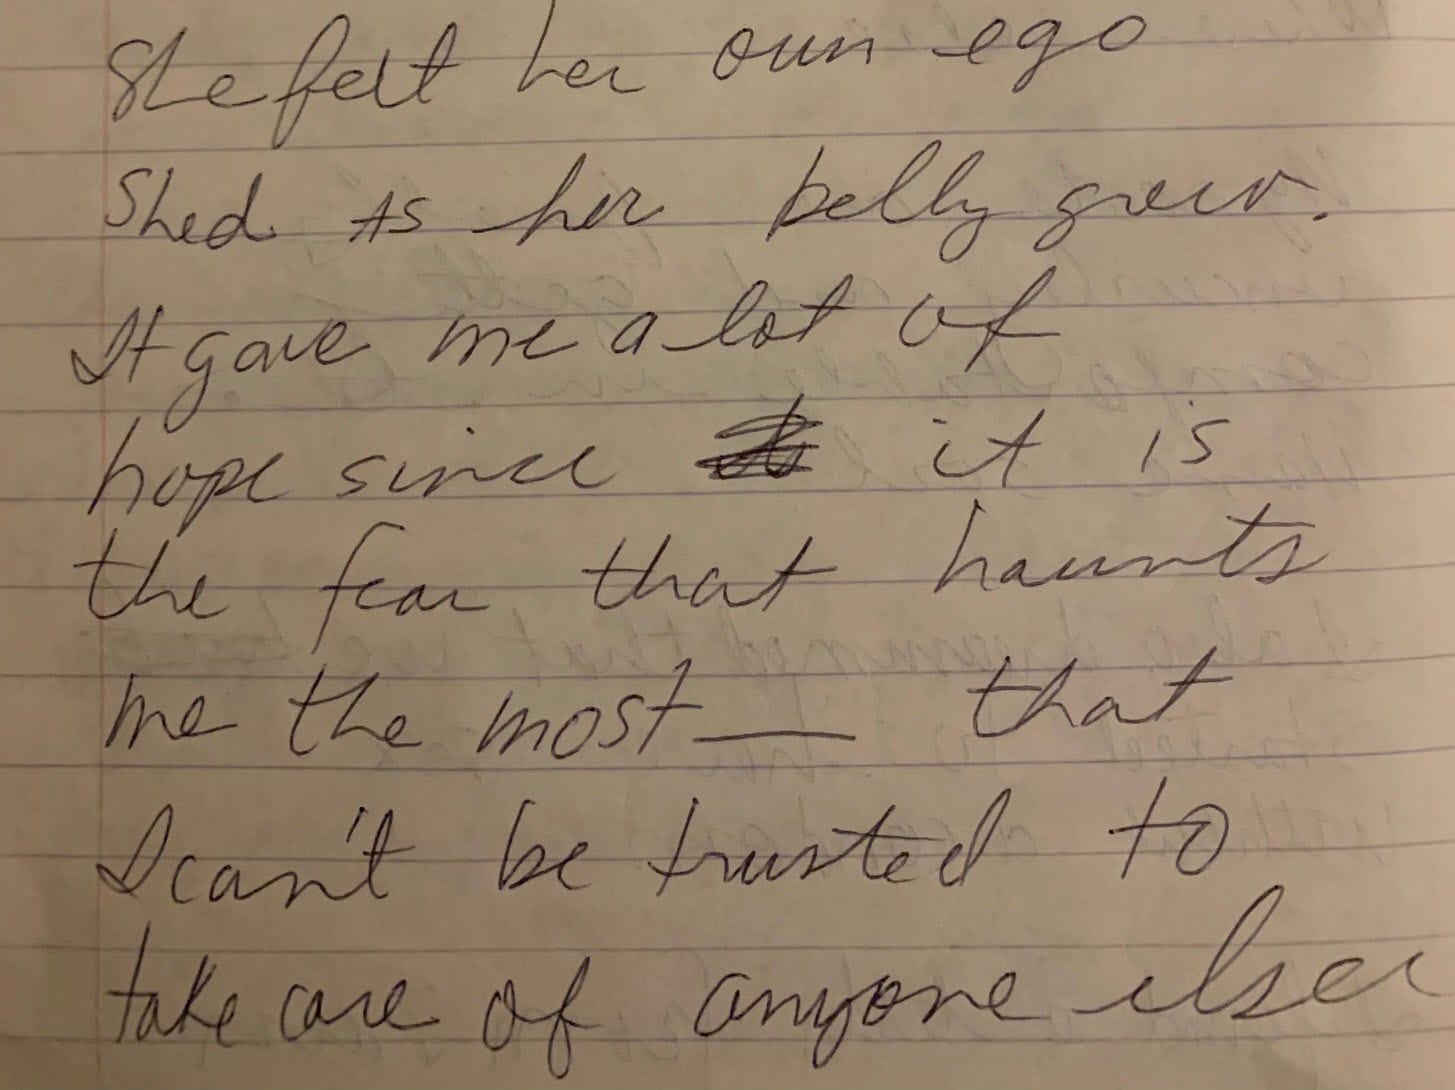 She felt her own ego
Shed as her belly grew.
It gave me a lot of
hope since it is
the fear that haunts
me the most — that
I can't be trusted to
take care of anyone else